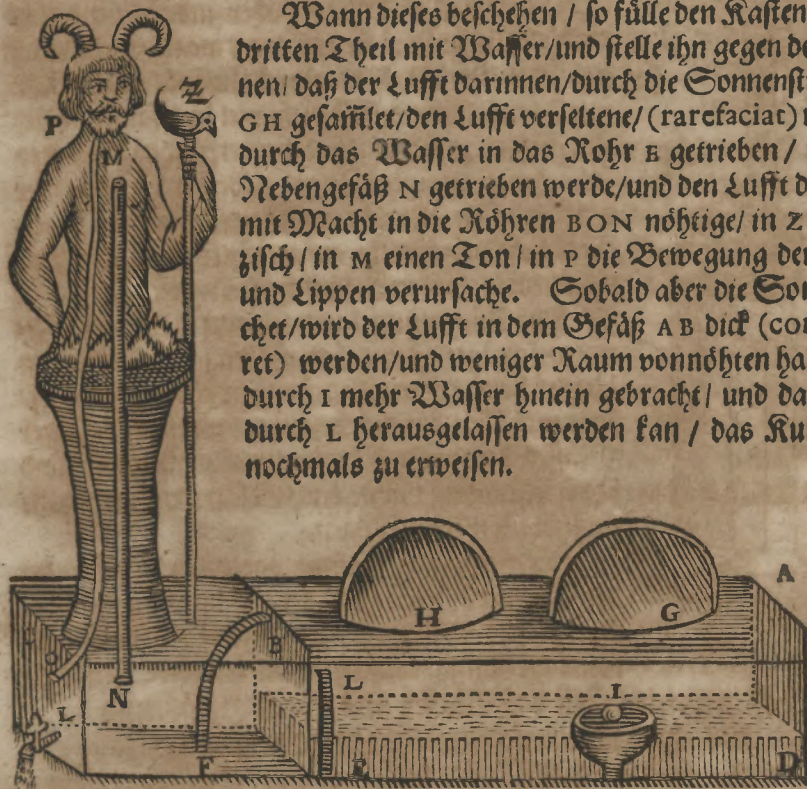 Wann dieses beschehen / so fülle den Kasten
dritten Theil mit Wasser/und stelle ihn gegen de
nen/ daß der Lufft darinnen/durch die Sonnenst
GH gesam̃let/den Lufft verseltene/ (rarefaciat)
durch das Wasser in das Rohr E getrieben /
Nebengefäß N getrieben werde/und den Lufft d
mit Macht in die Röhren BON nöhtige/ in Z
zisch / in M einen Ton / in P die Bewegung der
und Lippen verursache. Sobald aber die Son
chet/wird der Lufft in dem Gefäß AB dick (con
ret) werden/und weniger Raum vonnöhten ha
durch I mehr Wasser hinein gebracht / und da
durch L herausgelassen werden kan / das Ku
nochmals zu erweisen.
Z
P
M
A
H
G
C
B
O
L
I
N
L
F
E
D